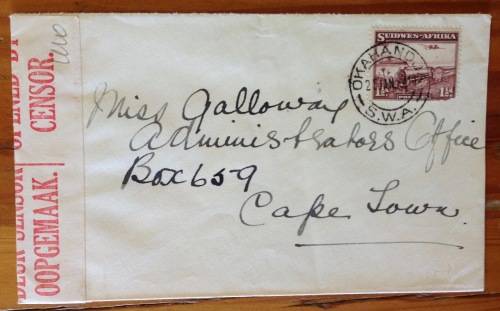 OPENED BY
CENSOR.
DEUR SENSOR
OOPGEMAAK.
SUIDWES-AFRIKA
1½
OKAHANDJA
S.W.A.
Miss Galloway
Administrators Office
Box 659
Cape Town